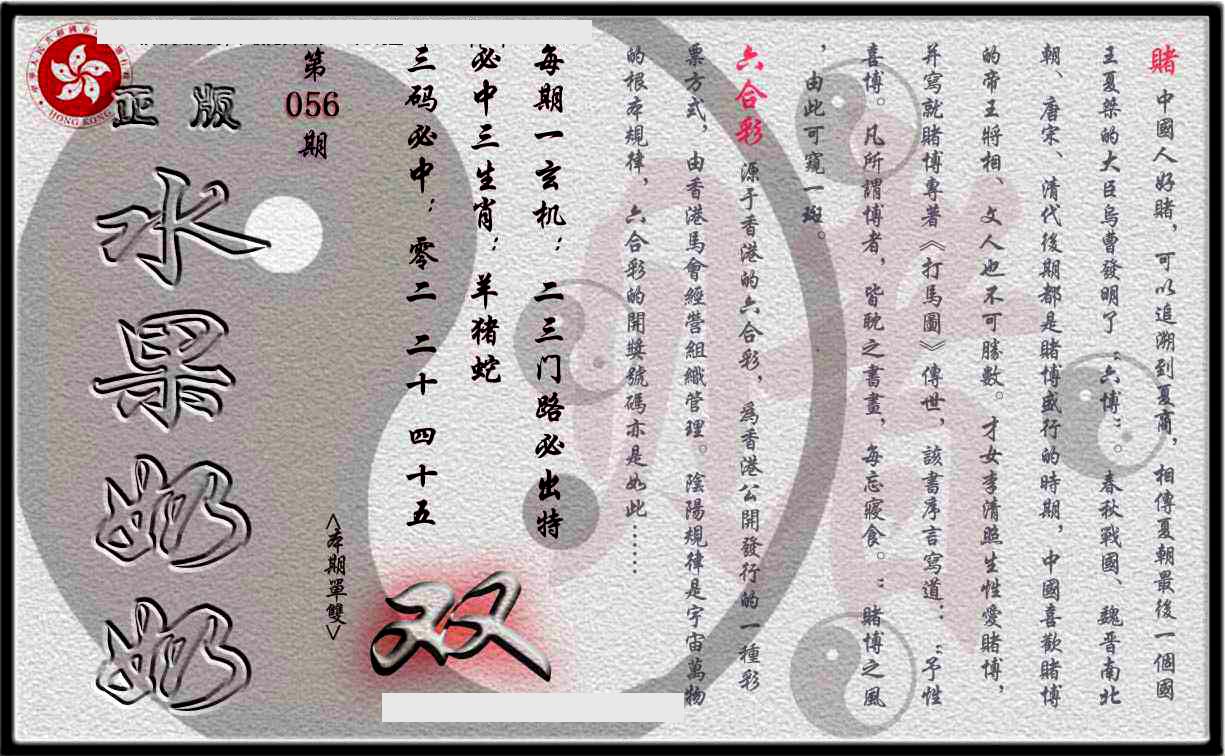 賭 中國人好賭，可以追溯到夏商，相傳夏朝最後一個國
王夏桀的大臣烏曹發明了“六博”。春秋戰國、魏晋南北
朝、唐宋、清代後期都是賭博盛行的時期，中國喜歡賭博
的帝王將相、文人也不可勝數。才女李清照生性愛賭博，
并寫就賭博專著《打馬圖》傳世，該書序言寫道：“予性
喜博。凡所謂博者，皆耽之書畫，每忘寢食。”賭博之風
，由此可窺一斑。
六合彩 源于香港的六合彩，為香港公開發行的一種彩
票方式，由香港馬會經營組織管理。陰陽規律是宇宙萬物
的根本規律，六合彩的開獎號碼亦是如此……
每期一玄机：二三门路必出特
必中三生肖：羊猪蛇
三码必中：零二 二十 四十五
<本期單雙>
双
第
056
期
正版
水果奶奶
HONG KONG